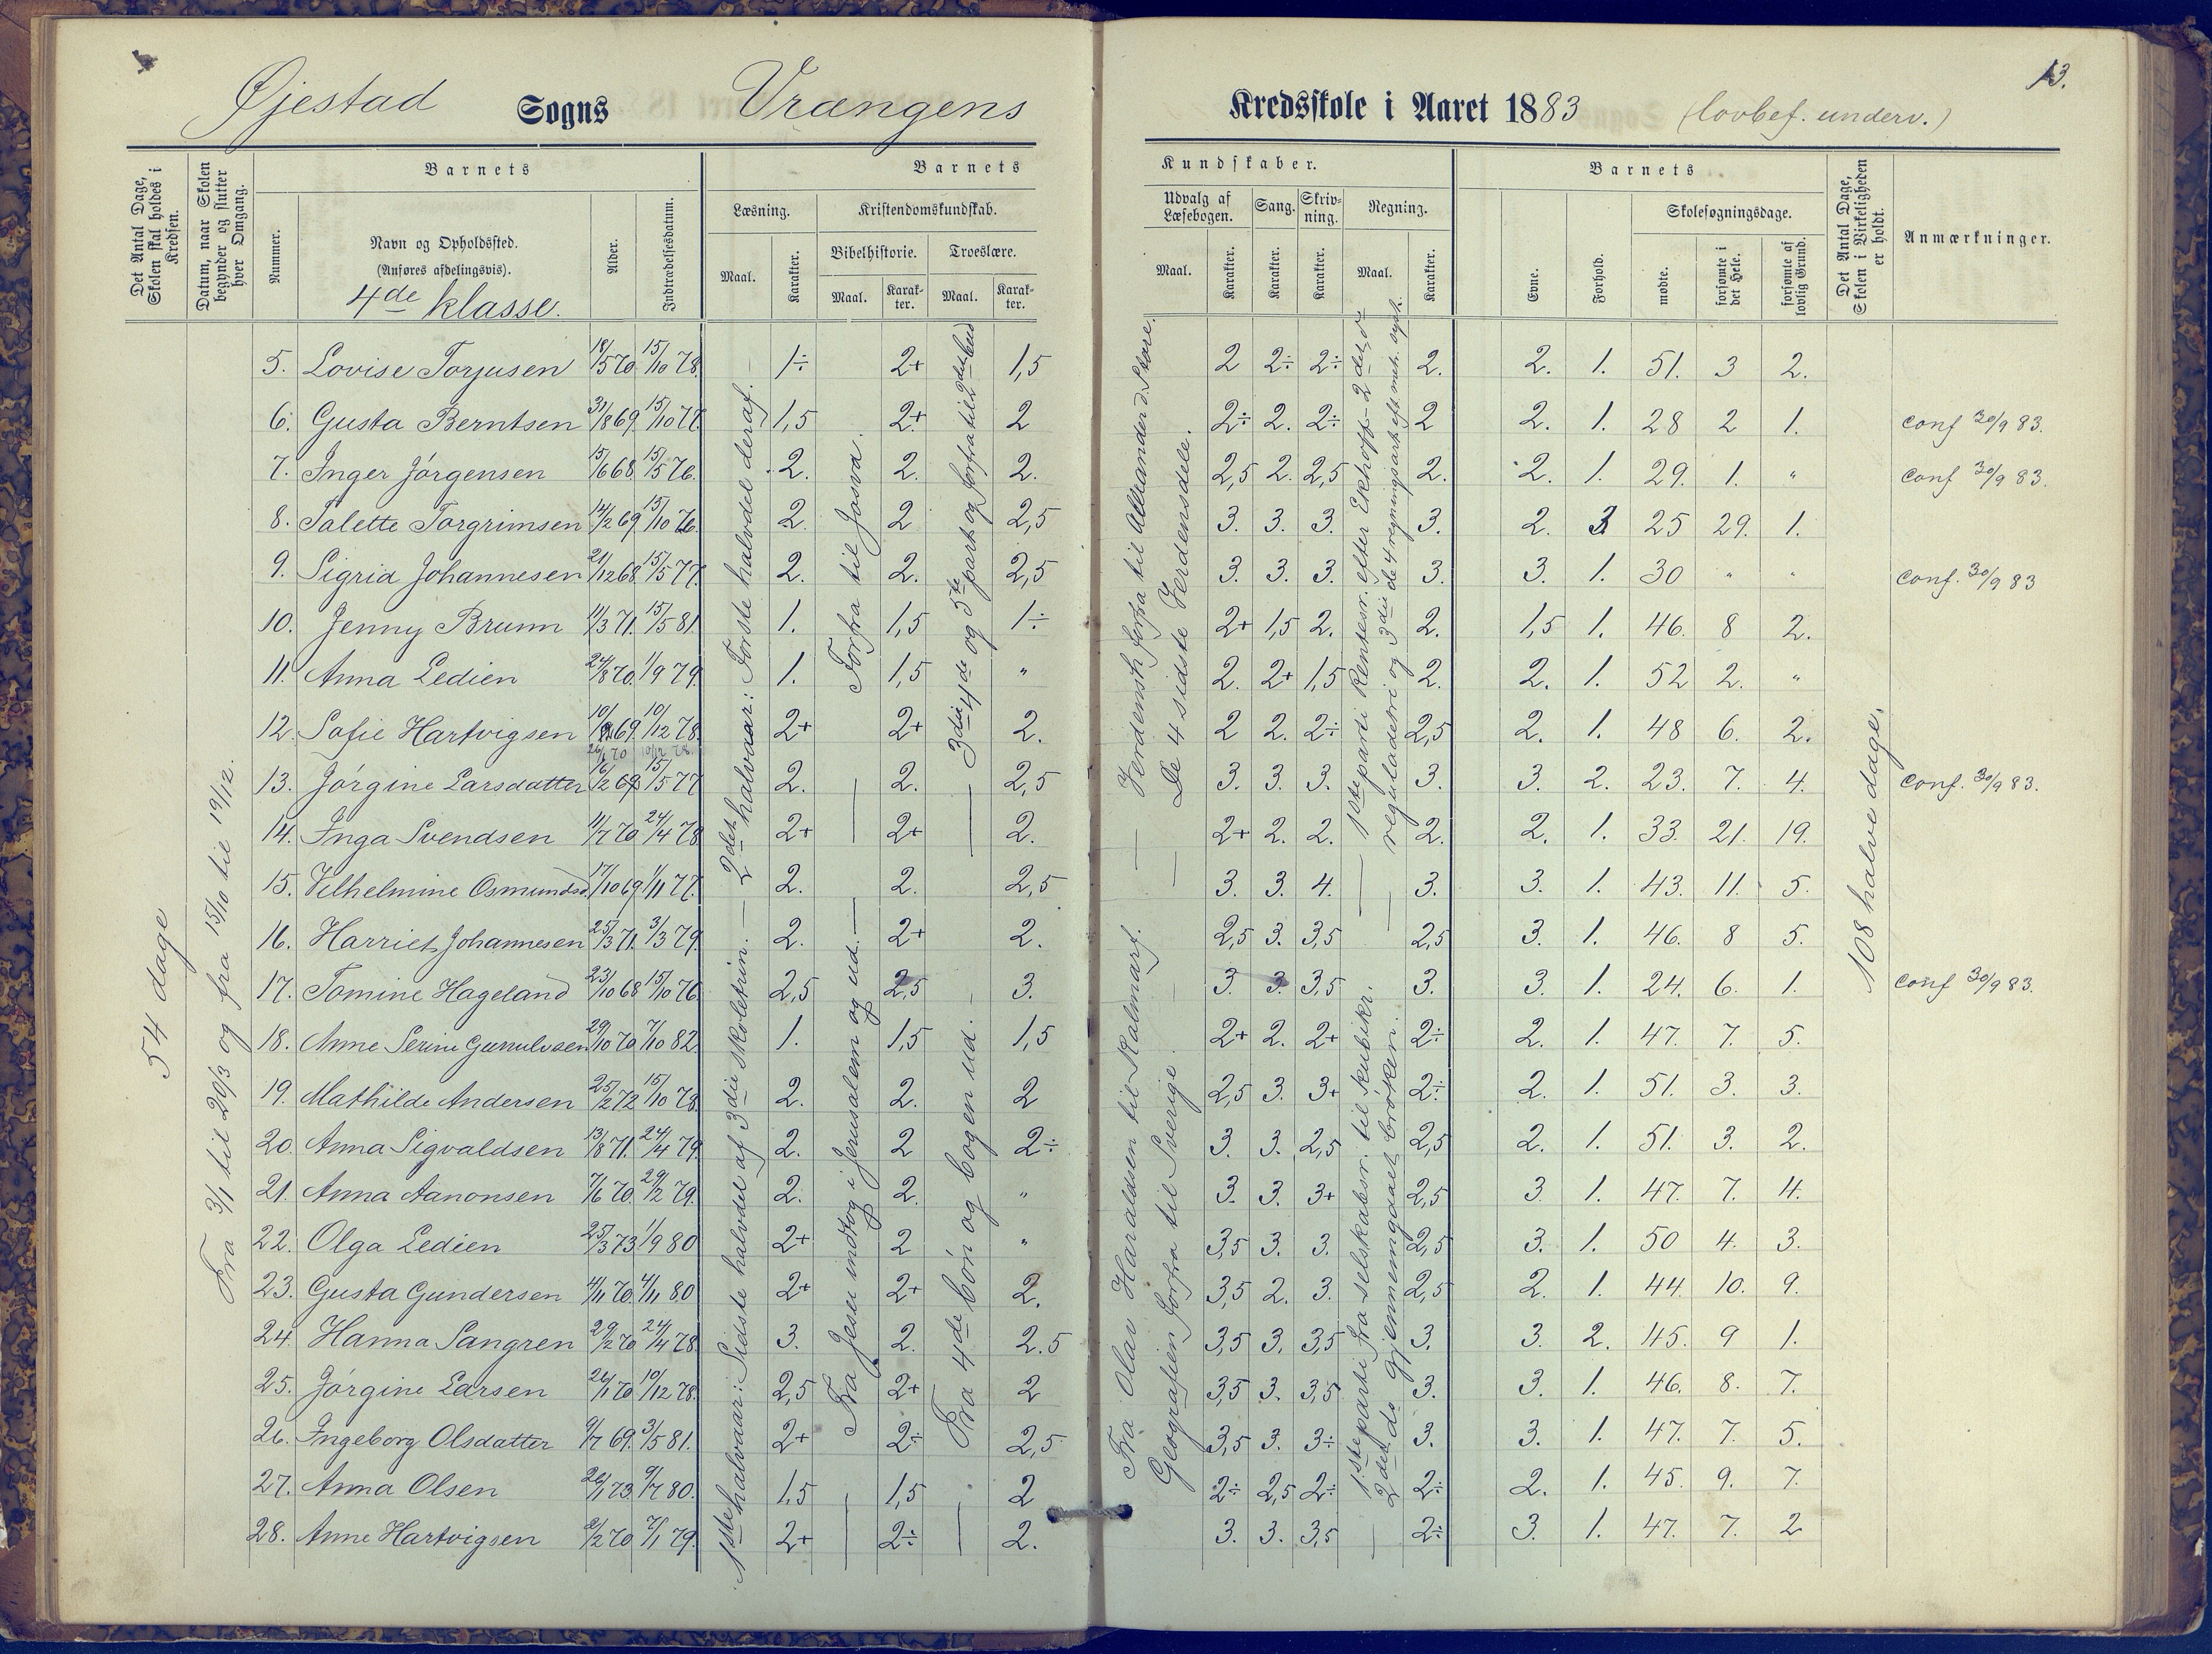 13.
Øjestad Sogns Vrængens Kredsskole i Aaret 1883 (lovbef. underv.)
Det Antal Dage, Skolen skal holdes i Kredsen.
Datum, naar Skolen begynder og slutter hver Omgang.
Barnets
Nummer.
Navn og Opholdssted.
(Anføres afdelingsvis).
4de klasse.
Alder.
Indtrædelsesdatum.
Barnets
Læsning.
Maal.
Karakter.
Kristendomskundskab.
Bibelhistorie.
Maal.
Karak-ter.
Troeslære.
Maal.
Karak-ter.
Kundskaber.
Udvalg af Læsebogen.
Maal.
Karakter.
Sang.
Karakter.
Skriv-ning.
Karakter.
Regning.
Maal.
Karakter.
Barnets
Evne.
Forhold.
Skolesøgningsdage.
mødte.
forsømte i det Hele.
forsømte af lovlig Grund.
Det Antal Dage, Skolen i Virkeligheden er holdt.
Anmærkninger.
54 dage
Fra 3/1 til 20/3 og fra 15/10 til 19/12.
1ste halvaar: Sidste halvdel af 3die skoletrin. — 2det halvaar: Første halvdel deraf.
Fra Jesu indtog i Jerusalem og ud. —
Forfra til Josva.
Fra 4de bøn og bogen ud.
3die 4de og 5te part og forfra til
Fra Olav Haraldsen til Kalmarf.
Verdensh. forfra til Alexander d. Store.
Geografien forfra til Sverige.
De 4 sidste Verdensdele.
1ste parti fra selskabsr. til kubikr.
2det do gjennemgaaet brøken.
1ste parti Rentesr. efter Ekhoff - 2det do
reguladetri og 3die de 4 regningsarter
108 halve dage.
5. Lovise Torjusen 18/5 70 15/10 78. 1÷ 2+ 1,5 2 2÷ 2÷ 2. 2. 1. 51. 3 2.
6. Gusta Berntsen 31/8 69. 15/10 77. 1,5 2+ 2 2÷ 2. 2÷ 2 2. 1. 28 2 1. conf 30/9 83.
7. Inger Jörgensen 15/6 68. 15/5 76. 2. 2. 2. 2,5 2. 2,5 2. 2. 1. 29. 1. " conf 30/9 83.
8. Talette Torgrimsen 14/2 69. 15/10 76. 2. 2 2,5 3. 3. 3. 3. 2. 3 25 29. 1.
9. Sigrid Johannesen 21/12 68 15/5 77. 2. 2. 2,5 3. 3. 3. 3. 3. 1. 30 " " conf. 30/9 83
10. Jenny Brunn 11/3 71. 15/5 81. 1. 1,5 1÷ 2+ 1,5 2. 2. 1,5 1. 46. 8 2.
11. Anna Ledien 24/8 70. 1/9 79. 1. 1,5 " 2. 2+ 1,5 2. 2. 1. 52 2. "
12. Sofie Hartvigsen 69. 10/12 78. 2+ 2+ 2. 2 2. 2÷ 2,5 2. 1. 48 6. 2.
26/1 70 10/12 78.
13. Jörgine Larsdatter 16/2 69 15/5 77 2. 2. 2,5 3. 3. 3. 3. 3. 2. 23. 7. 4. conf. 30/9 83.
14. Inga Svendsen 11/7 70 24/4 78 2+ 2+ 2. 2+ 2. 2. 2. 2. 1. 33. 21. 19.
15. Vilhelmine Osmundsd. 17/10 69. 1/11 77. 2. 2. 2,5 3. 3. 4. 3. 3. 1. 43. 11. 5.
16. Harriet Johannesen 25/3 71. 3/3 79. 2. 2+ 2. 2,5 3. 3,5 2,5 3. 1. 46. 8 5.
17. Tomine Hageland 23/10 68 15/10 76. 2,5 2,5 3. 3. 3. 3,5 3. 3. 1. 24. 6. 1. conf 30/9 83.
18. Anne Serine Gunnulvsen 29/10 70 7/10 82 1. 1,5 1,5 2+ 2. 2+ 2÷ 2. 1. 47. 7. 5.
19. Mathilde Andersen 25/2 72 15/10 78. 2. 2. 2 2,5 3. 3+ 2÷ 2. 1. 51. 3. 3.
20. Anna Sigvaldsen 13/8 71. 24/4 79. 2. 2 2÷ 3. 3. 2,5 2,5 2. 1. 51. 3. 2.
21. Anna Aanonsen 7/6 70. 29/2 79. 2. 2. " 3. 3. 3+ 2,5 3. 1. 47. 7. 4.
22. Olga Ledien 25/3 73 1/9 80 2+ 2 " 3,5 3. 3. 2,5 3. 1. 50 4. 3.
23. Gusta Gundersen 4/11 70. 4/11 80 2+ 2+ 2. 3,5 2. 3. 2,5 2. 1. 44. 10. 9.
24. Hanna Sangren 29/2 70 24/4 78. 3. 2. 2.5 3,5 3. 3,5 3. 3. 2. 45. 9 1.
25. Jörgine Larsen 26/1 70 10/12 78. 2,5 2+ 2 3,5 3. 3,5 3. 3. 1. 46. 8. 7.
26. Ingeborg Olsdatter 9/7 69. 3/5 81. 2+ 2÷ 2,5 3,5 3. 3÷ 3. 3. 1. 47. 7. 5.
27. Anna Olsen 26/1 73. 9/7 80. 1,5 1,5 2 2÷ 2,5 2÷ 2÷ 2. 1. 45. 9. 7.
28. Anne Hartvigsen 2/2 70 7/1 79. 2+ 2÷ 2. 3. 3. 3,5 2÷ 3. 1. 47. 7. 2